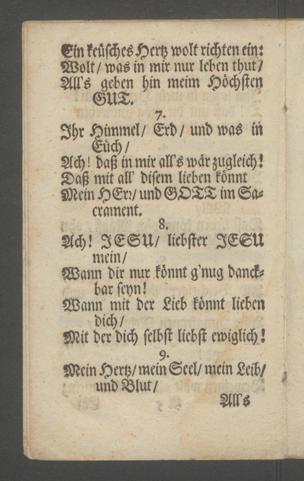 Ein keüsches Hertz wolt richten ein:
Wolt/ was in mir nur leben thut/
All's geben hin meim Höchsten
GUT.
7.
Ihr Himmel/ Erd/ und was in
Eüch/
Ach! daß in mir all's wär zugleich!
Daß mit all' disem lieben könnt
Mein HErr/ und GOTT im Sa-
crament.
8.
Ach! JESU/ liebster JESU
mein/
Wann dir nur könnt g'nug danck-
bar seyn!
Wann mit der Lieb könnt lieben
dich/
Mit der dich selbst liebst ewiglich!
9.
Mein Hertz/ mein Seel/ mein Leib/
und Blut/
All's